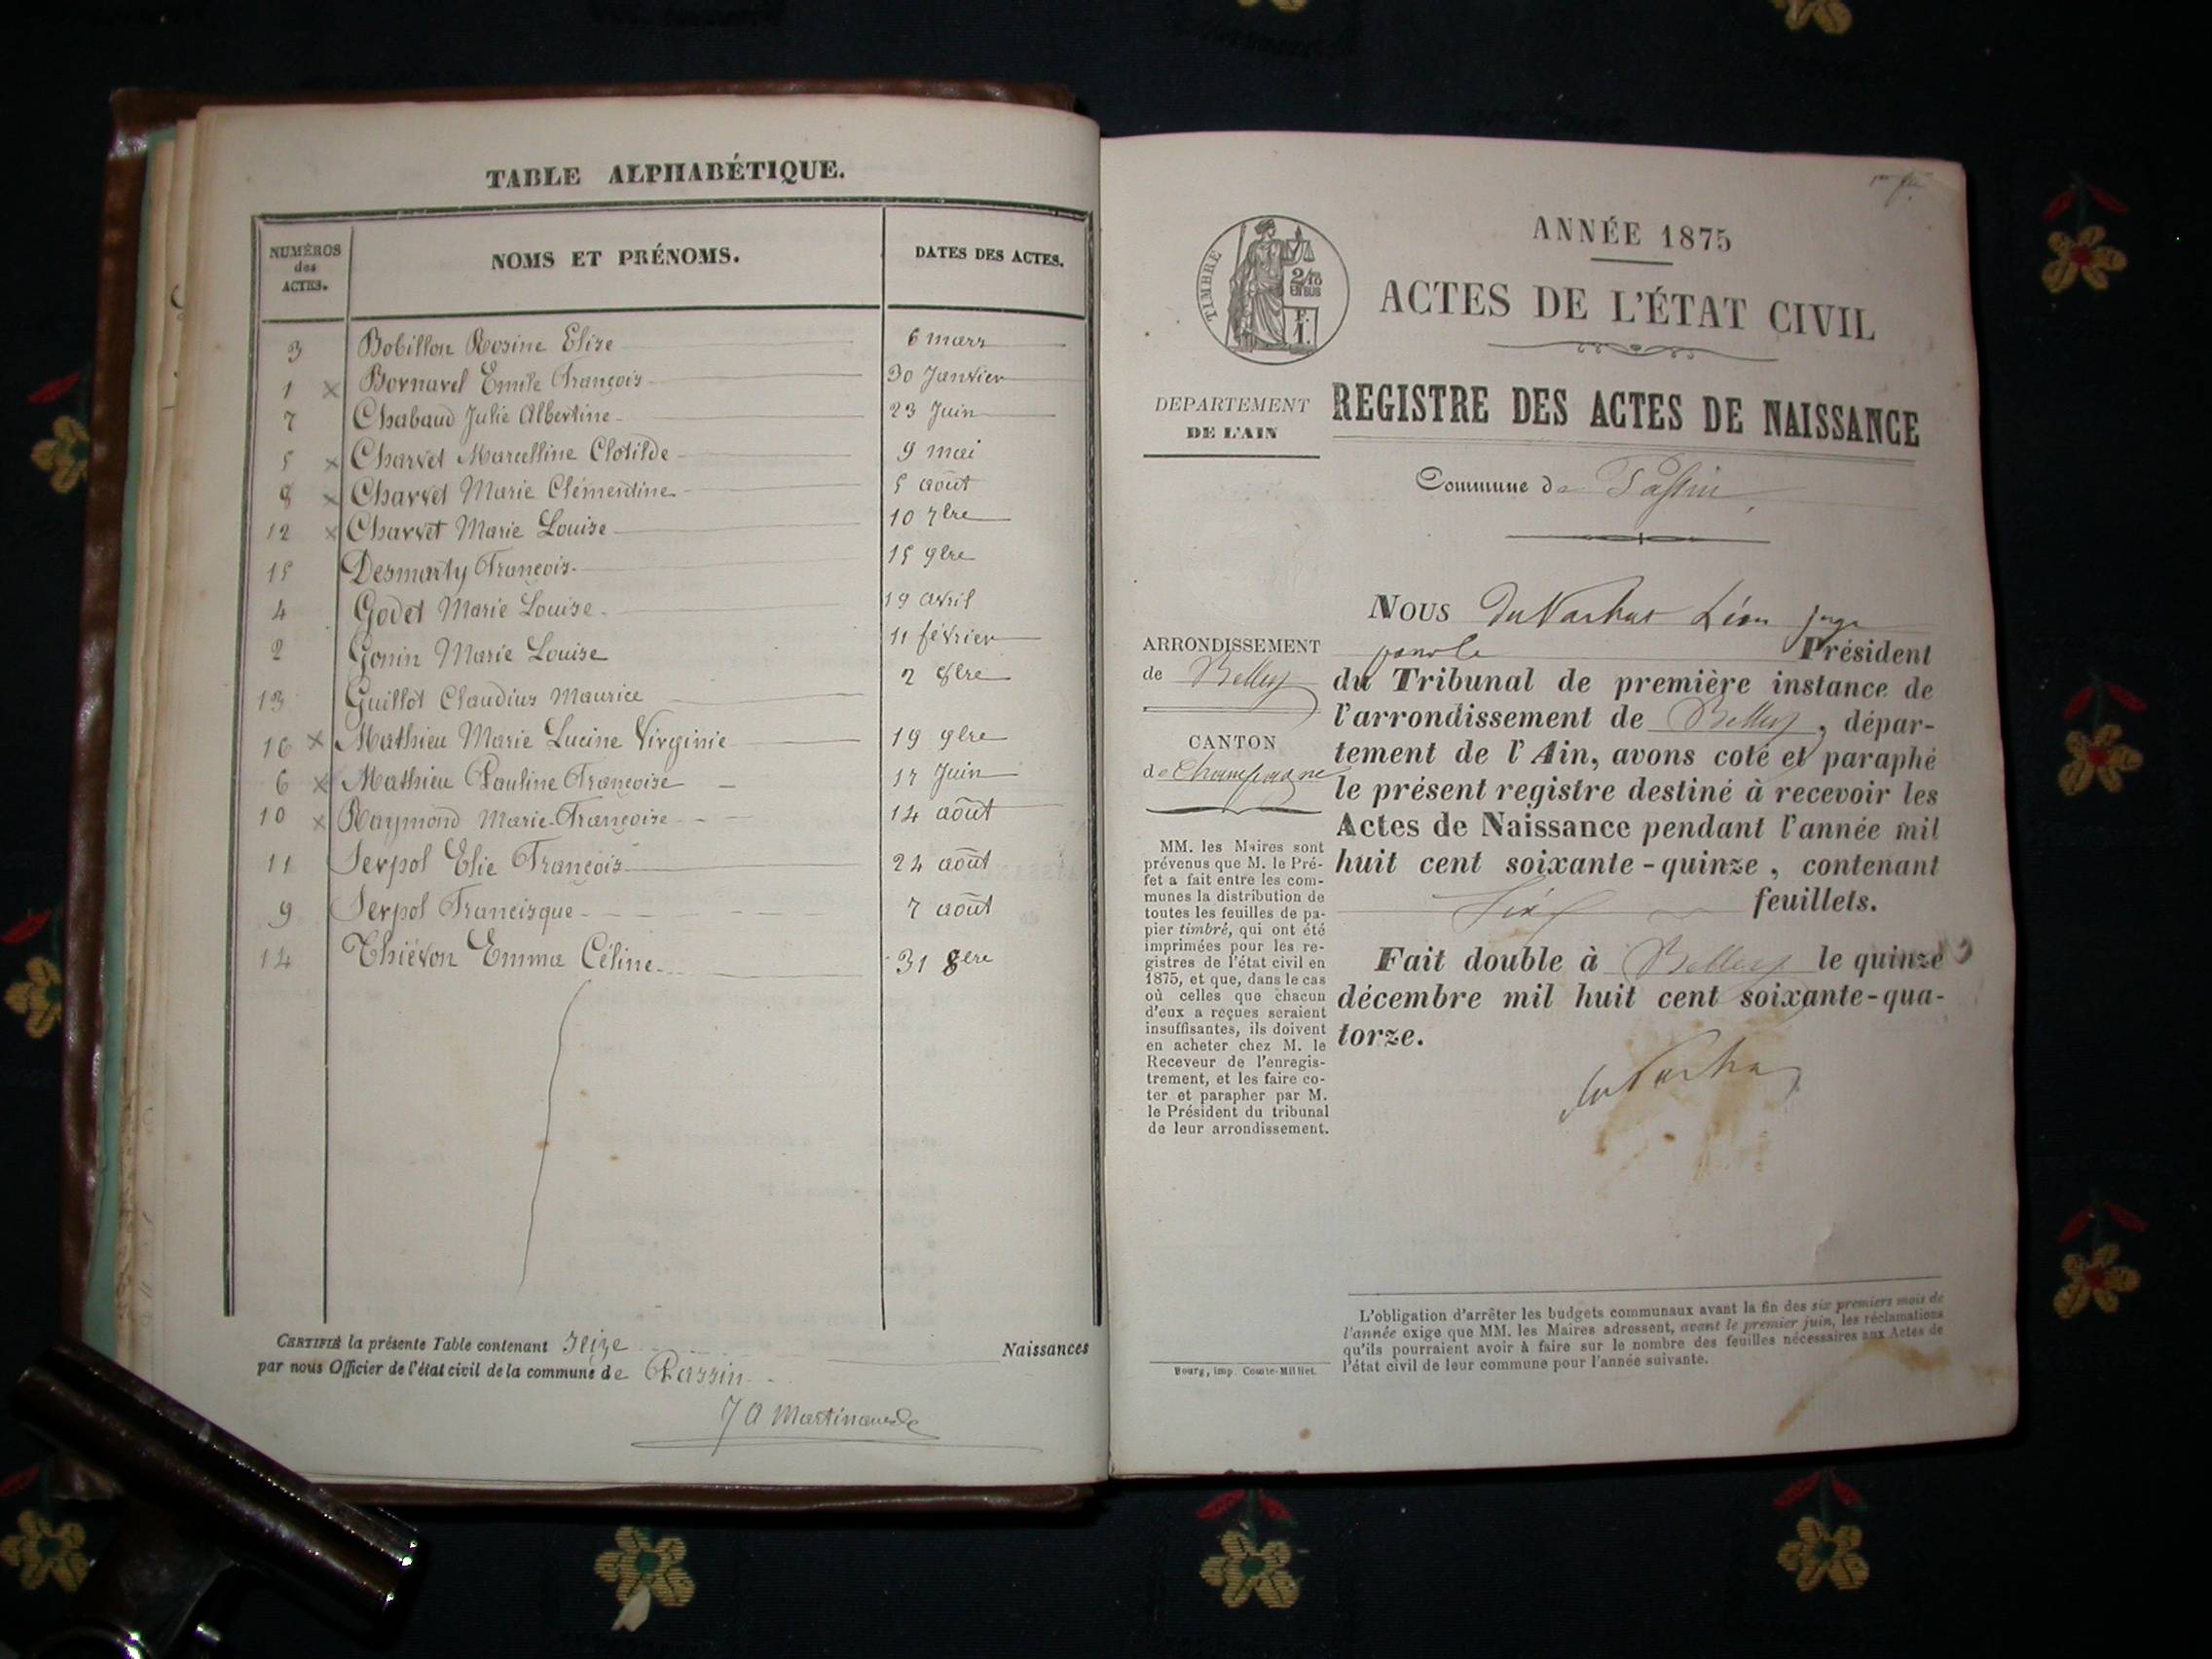 TABLE ALPHABÉTIQUE.
NUMÉROS des ACTES. NOMS ET PRÉNOMS. DATES DES ACTES.
3 Bobillon Rosine Elise 6 mars
1 x Bornarel Emile François 30 Janvier
7 Chabaud Julie Albertine 23 Juin
5 x Charvet Marcelline Clotilde 9 mai
8 x Charvet Marie Clémentine 5 août
12 x Charvet Marie Louise 10 7bre
15 Desmarty François 15 9bre
4 Godet Marie Louise 19 avril
2 Gonin Marie Louise 11 février
13 Guillot Claudius Maurice 2 8bre
16 x Mathieu Marie Lucine Virginie 19 9bre
6 x Mathieu Pauline Françoise 17 Juin
10 x Raymond Marie-Françoise 14 août
11 Serpol Elie François 24 août
9 Serpol Francisque 7 août
14 Thiévon Emma Céline 31 8bre
CERTIFIÉ la présente Table contenant Seize Naissances
par nous Officier de l'état civil de la commune de Passin
ANNÉE 1875
TIMBRE
2/10 EN SUS
F. 1.
ACTES DE L'ÉTAT CIVIL
DEPARTEMENT
DE L'AIN
REGISTRE DES ACTES DE NAISSANCE
Commune de Passin
ARRONDISSEMENT
de Belley
CANTON
de Champagne
MM. les Maires sont
prévenus que M. le Pré-
fet a fait entre les com-
munes la distribution de
toutes les feuilles de pa-
pier timbré, qui ont été
imprimées pour les re-
gistres de l'état civil en
1875, et que, dans le cas
où celles que chacun
d'eux a reçues seraient
insuffisantes, ils doivent
en acheter chez M. le
Receveur de l'enregis-
trement, et les faire co-
ter et parapher par M.
le Président du tribunal
de leur arrondissement.
NOUS Léon juge
Président
du Tribunal de première instance de
l'arrondissement de Belley, dépar-
tement de l'Ain, avons coté et paraphé
le présent registre destiné à recevoir les
Actes de Naissance pendant l'année mil
huit cent soixante-quinze, contenant
Six feuillets.
Fait double à Belley le quinze
décembre mil huit cent soixante-qua-
torze.
Bourg, imp. Comte-Milliet.
L'obligation d'arrêter les budgets communaux avant la fin des six premiers mois de
l'année exige que MM. les Maires adressent, avant le premier juin, les réclamations
qu'ils pourraient avoir à faire sur le nombre des feuilles nécessaires aux Actes de
l'état civil de leur commune pour l'année suivante.